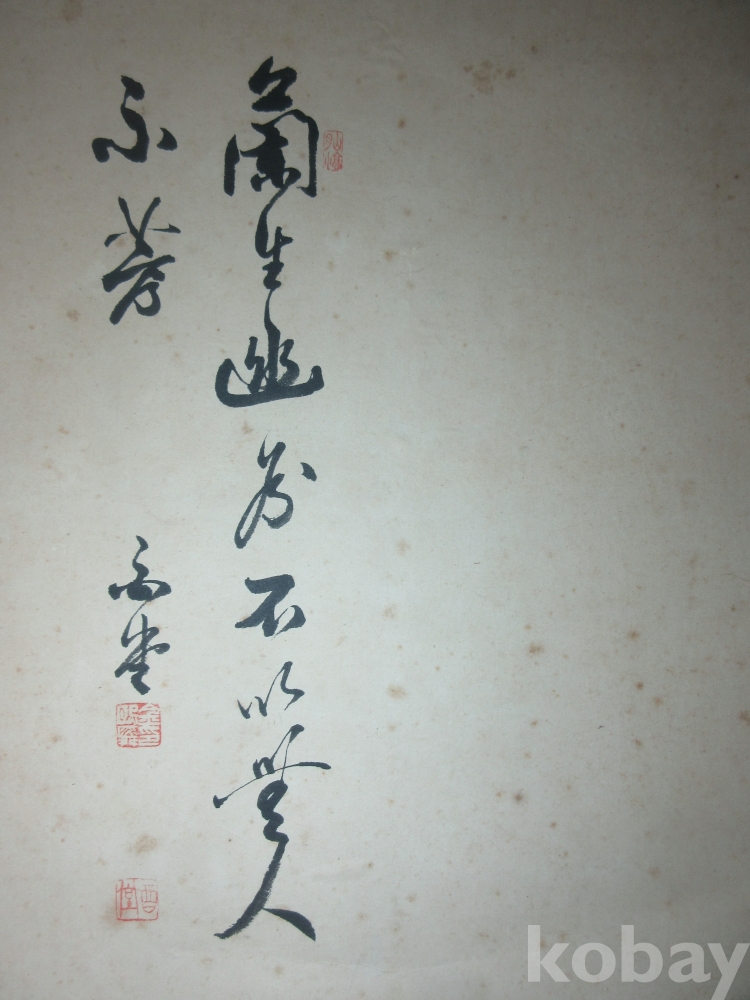 蘭生幽谷不以無人
不芳
kobay